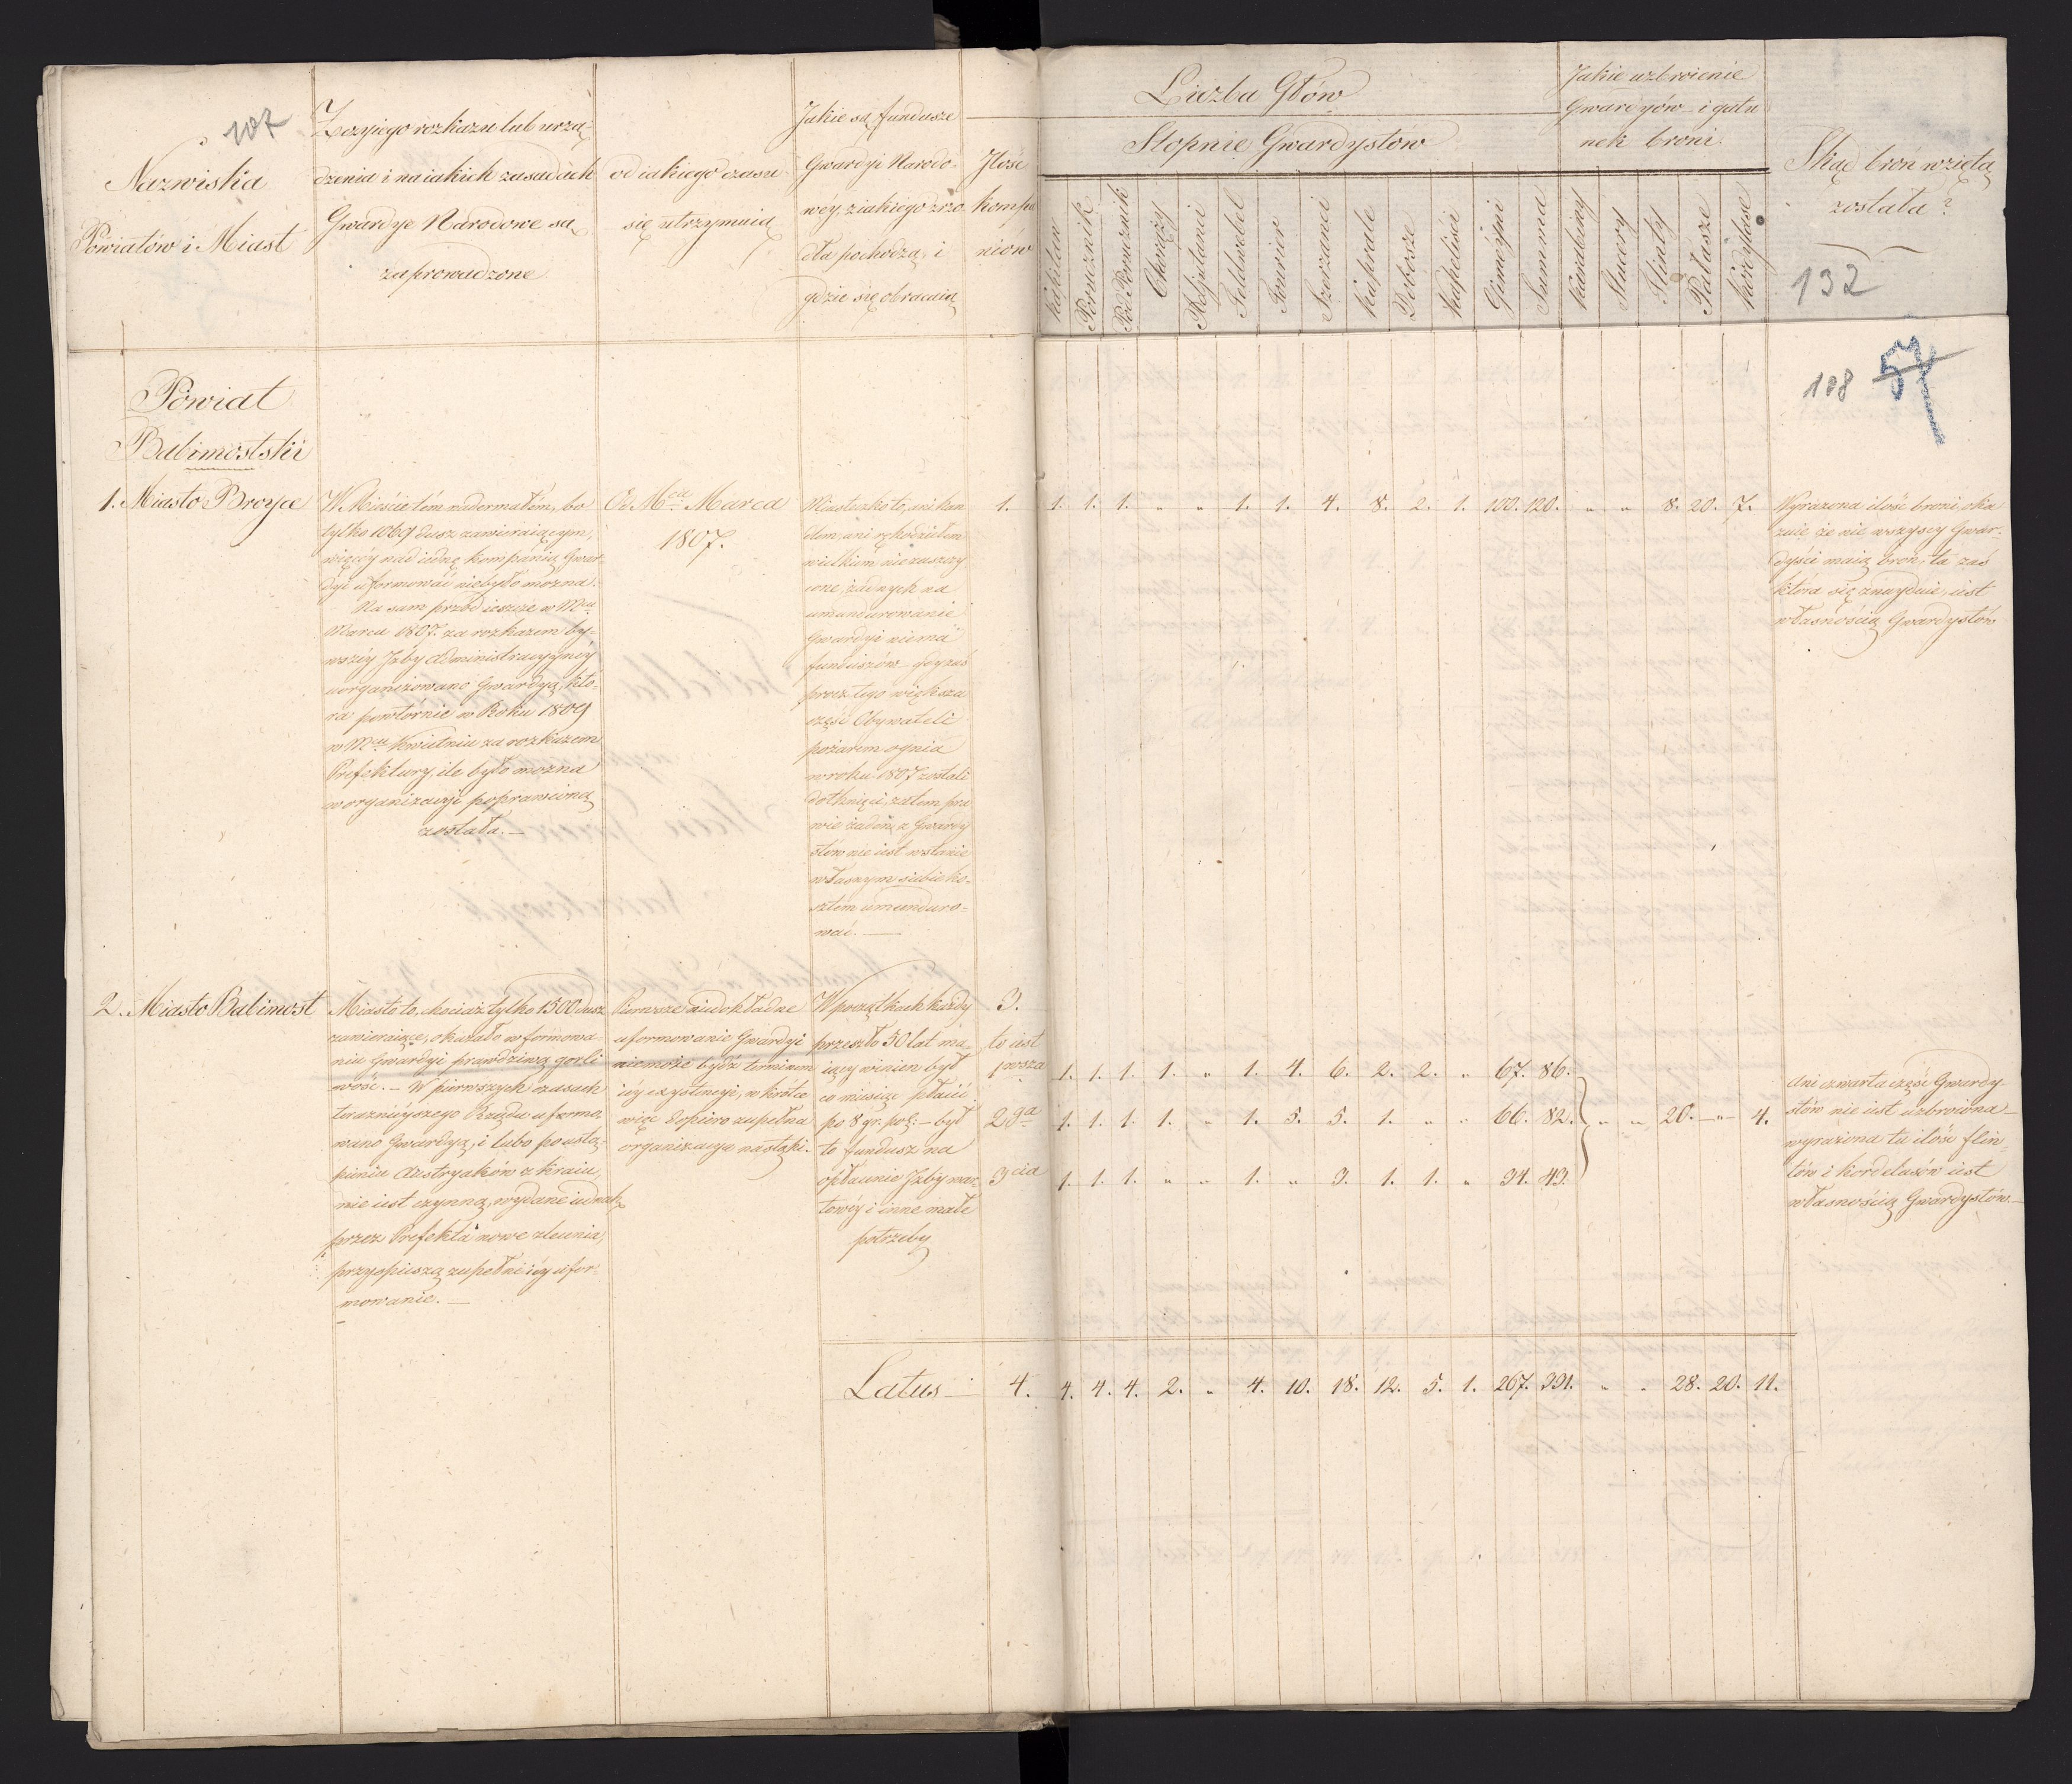 107
Nazwiska
Powiatów i Miast
Z czyjego rozkazu lub urzą-
dzenia i na iakich zasadach
Gwardye Narodowe są
zaprowadzone
od iakiego czasu
się utrzymuią
Jakie są fundusze
Gwardyi Narodo-
wey, z iakiego źrzo-
dła pochodzą, i
gdzie się obracaią
Jlość
kompa
niów
Liczba Głów
Stopnie Gwardystów
Kapitan
Porucznik
Pod Porucznik
Chorąży
Adjutanci
Feldwebel
Fourier
Szerzanci
Kaprale
Dobosze
Kapeliści
Gimejni
Summa
Jakie uzbroienie
Gwardyów i gatu
nek broni
Karabiny
Stucery
Flinty
Pałasze
Kordylase
Skąd broń wzięta
została?
132
108 54
Powiat
Babimostski
1. Miasto Broyce
W Mieście tém nader małém, bo
tylko 1069 dusz zawieraiącym,
więcéy nad iednę kompanią Gwar-
dyi uformować niebyło można.
Na sam przód ieszcze w Mcu
Marcu 1807. za rozkazem by-
wszéy Jzby Administracyynéy
uorganizowano Gwardyą, któ-
ra powtórnie w Roku 1809
w Mcu Kwietniu za rozkazem
Prefektury, ile było można
w organizacyi poprawioną
została. —
Od Mca Marca
1807.
Miasteczko to, ani han
dlem, ani rękodziełem
wielkim nie zaszczy
cone, żadnych na
umundurowanie
Gwardyi niema
funduszów gdy zaś
procz tego większa
część Obywateli
pożarem ognia
w roku 1807 zostali
dotknięci, zatem pra
wie żaden z Gwardy
stów nie iest w stanie
własnym siebie ko-
sztem umunduro-
wać. —
1.
1. 1. 1. " " 1. 1. 4. 8. 2. 1. 100. 120. " " 8. 20. 7.
Wyrażona ilość broni, oka
zuie że nie wszyscy Gwar-
dyści maią broń, ta zaś
która się znayduie, iest
własnością Gwardystów
2. Miasto Babimost
Miasto to, chociaż tylko 1500 dusz
zawieraiące, okazało w formowa
niu Gwardyi prawdziwą gorli
wość. — W pierwszych czasach
teraznieyszego Rządu uformo-
wano Gwardyą, i lubo po ustą-
pieniu Austryaków z kraiu,
nie iest czynną, wydane iednak
przez Prefekta nowe zlecenia,
przyspieszą zupełné iéy ufor-
mowanie. —
Pierwsze niedokładne
uformowanie Gwardyi
niemoże bydź terminem
iéy exystencyi, wkrótce
więc dopiero zupełna
organizacya nastąpi.
W początkach każdy
przeszło 50 lat ma-
iący winien był
co miesiąc płacić
po 8 gr. pol: — był
to fundusz na
opłacenie Jzby war-
towéy i inne małe
potrzeby
3.
to iest
1wsza
1. 1. 1. 1. " 1. 4. 6. 2. 2. " 67. 86.
2ga
1. 1. 1. 1. " 1. 5. 5. 1. " " 66. 82. " " 20. — " — 4.
3cia
1. 1. 1. " " 1. " 3. 1. 1. " 34. 43.
Ani czwarta część Gwardy-
stów nie iest uzbroiona —
wyrażona tu ilość flin-
tów i kordelasów iest
własnością Gwardystów. —
Latus — 4. 4. 4. 4. 2. " 4. 10. 18. 12. 5. 1. 267. 331. " " 28. 20. 11.